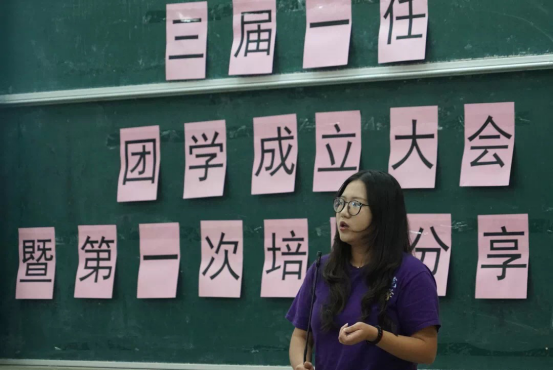 三届一任
团学成立大会
暨第一次培 分享